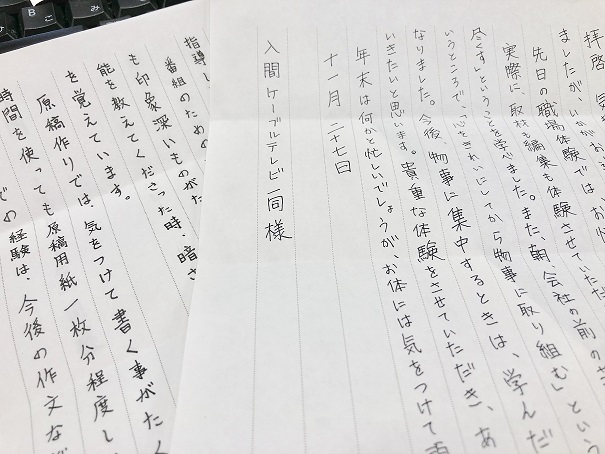 拝啓
ましたが、いかがお
先日の職場体験ではお
実際に、取材も編集も体験させていただ
尽くす」ということを学べました。また、朝、会社の前の
うところで、「心をきれいにしてから物事に取り組む」という
なりました。今後、物事に集中するときは、学んだ
いきたいと思います。貴重な体験をさせていただき、あ
年末は何かと忙しいでしょうが、お体には気をつけて
十一月 二十七日
入間ケーブルテレビ一同様
指導し
番組のための
も印象深いものがた
能を教えてくださった時、暗さ
を覚えています。
原稿作りでは、気をつけて書く事がたく
時間を使っても原稿用紙一枚分程度し
での経験は、今後の作文など